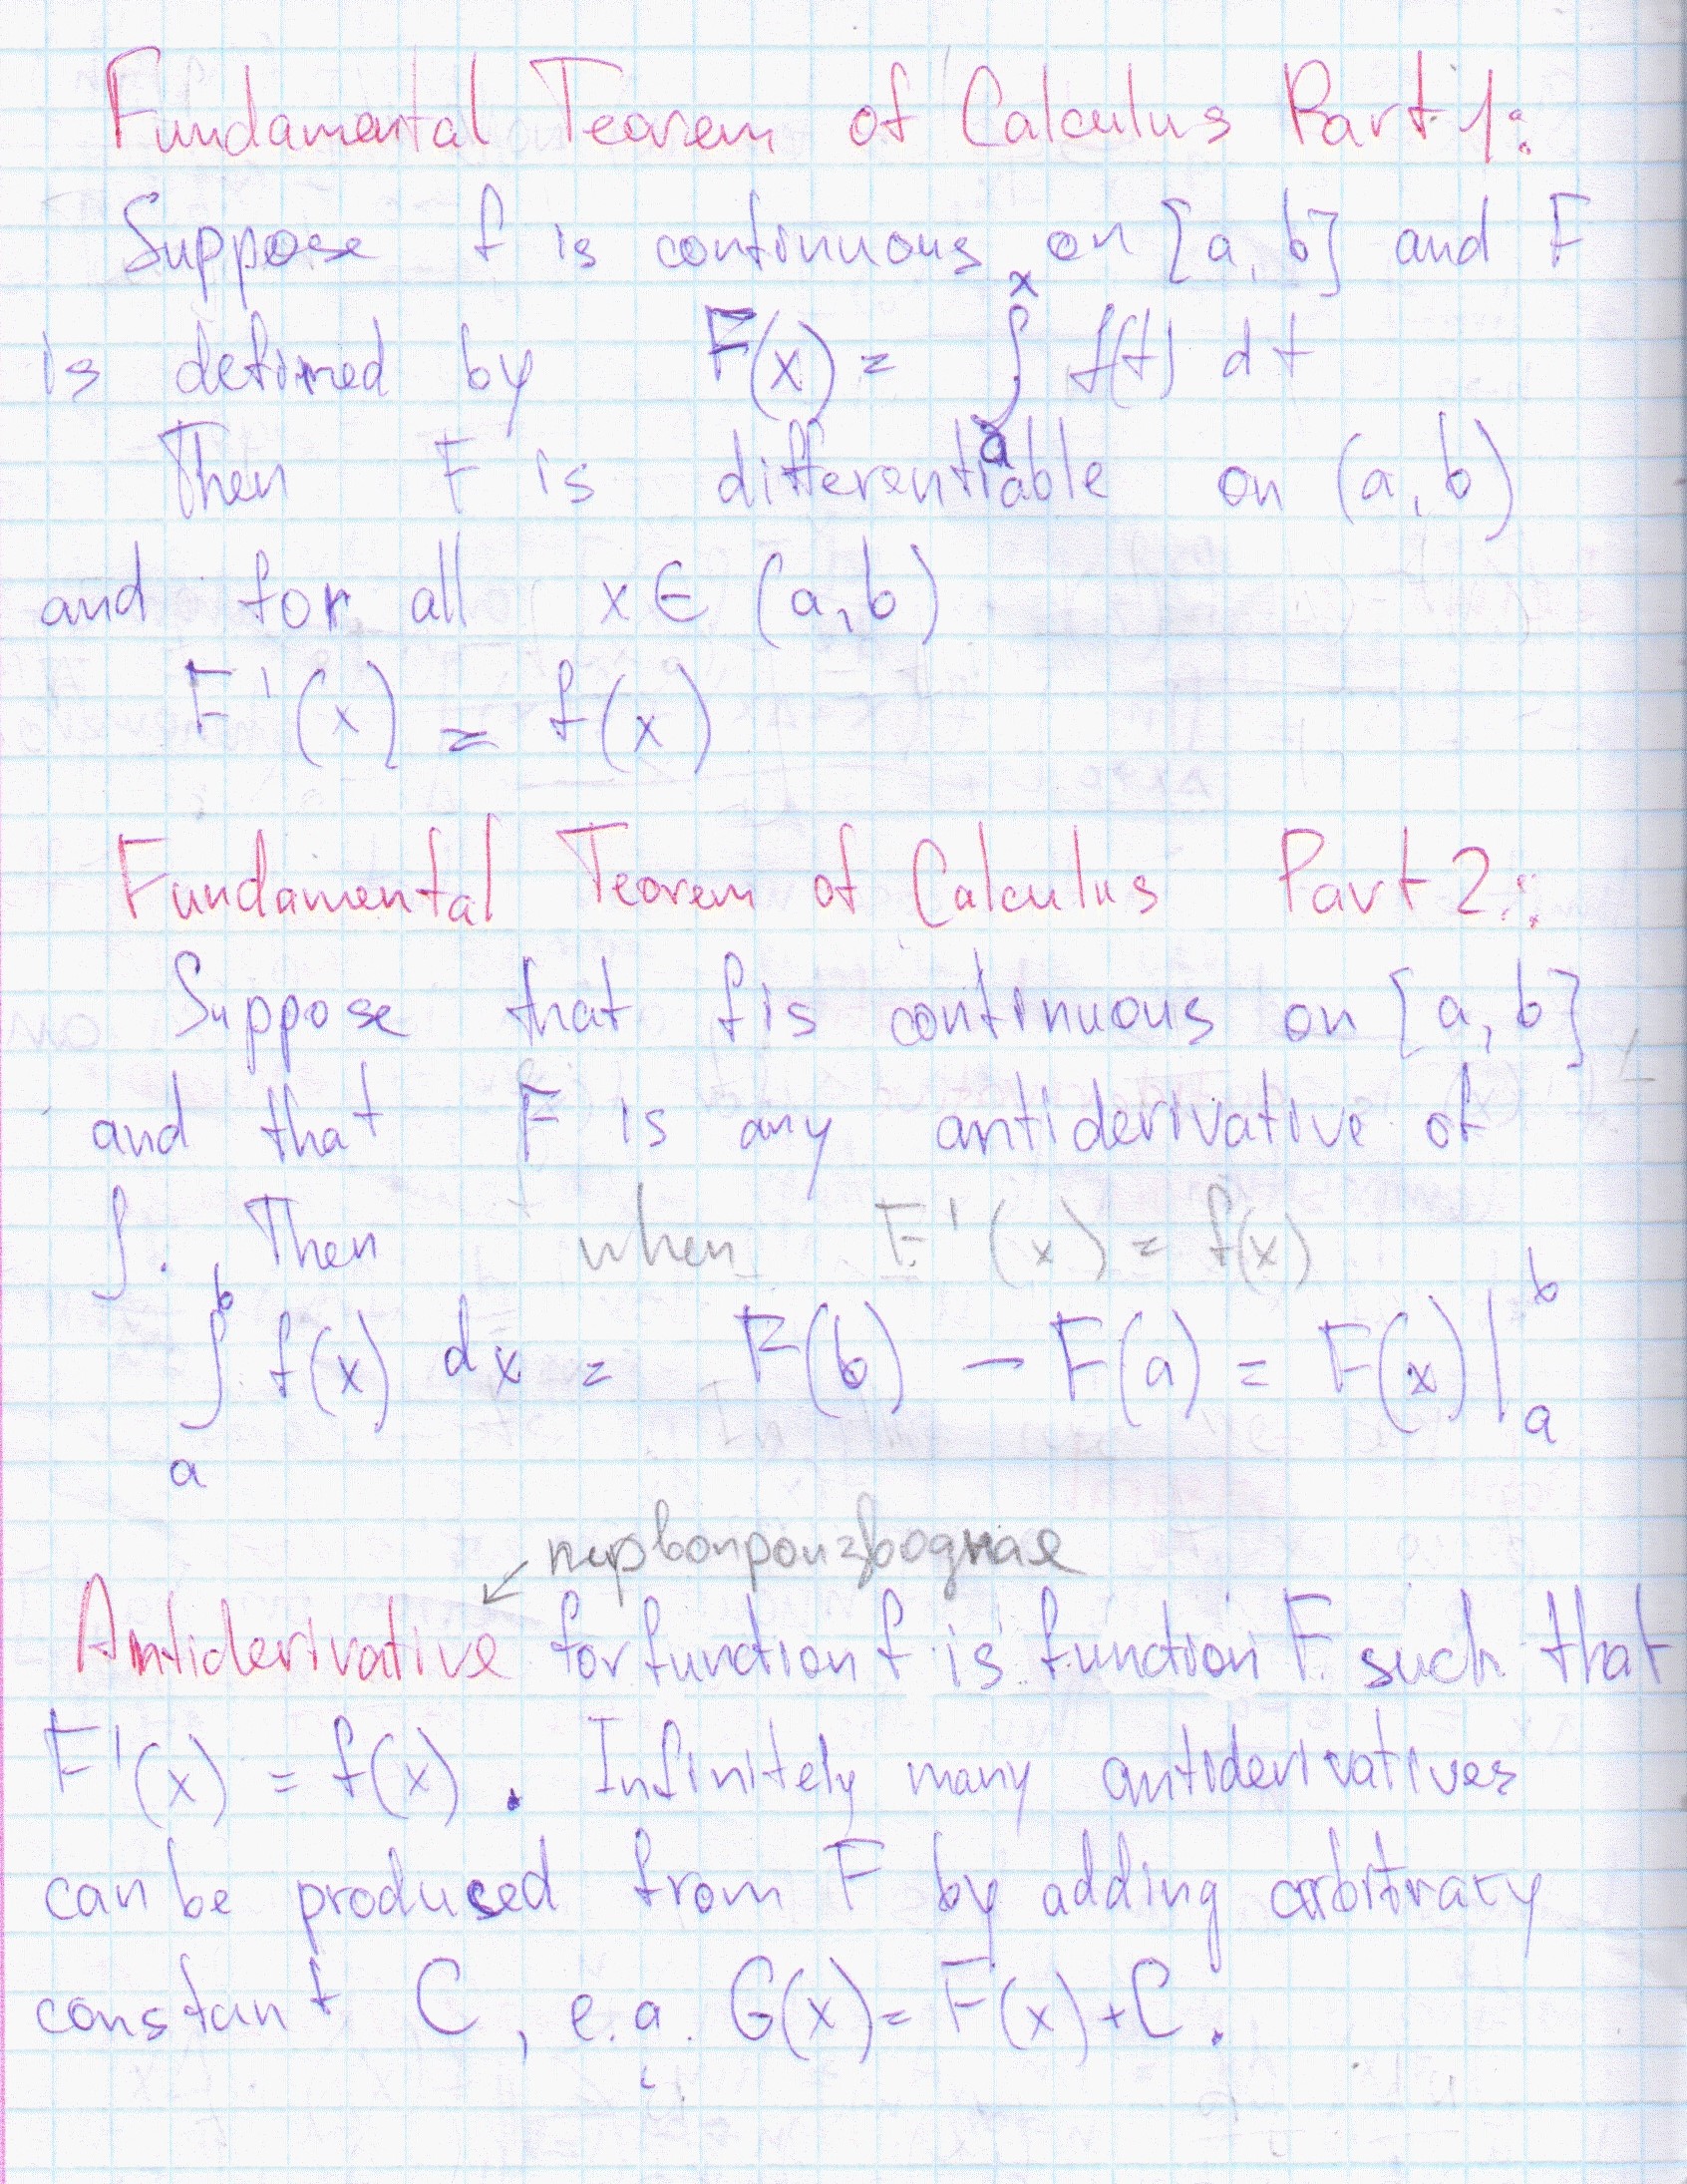 Fundamental Teorem of Calculus Part 1:
Suppose f is continuous on [a, b] and F
is defined by F(x) = ∫ₐˣ f(t) dt
Then F is differentiable on (a, b)
and for all x ∈ (a, b)
F'(x) = f(x)
Fundamental Teorem of Calculus Part 2:
Suppose that f is continuous on [a, b]
and that F is any antiderivative of
f. Then when F'(x) = f(x)
∫ₐᵇ f(x) dx = F(b) − F(a) = F(x)|ₐᵇ
первопроизводная
Antiderivative for function f is function F such that
F'(x) = f(x). Infinitely many antiderivatives
can be produced from F by adding arbitrary
constant C, e.g. G(x) = F(x) + C.